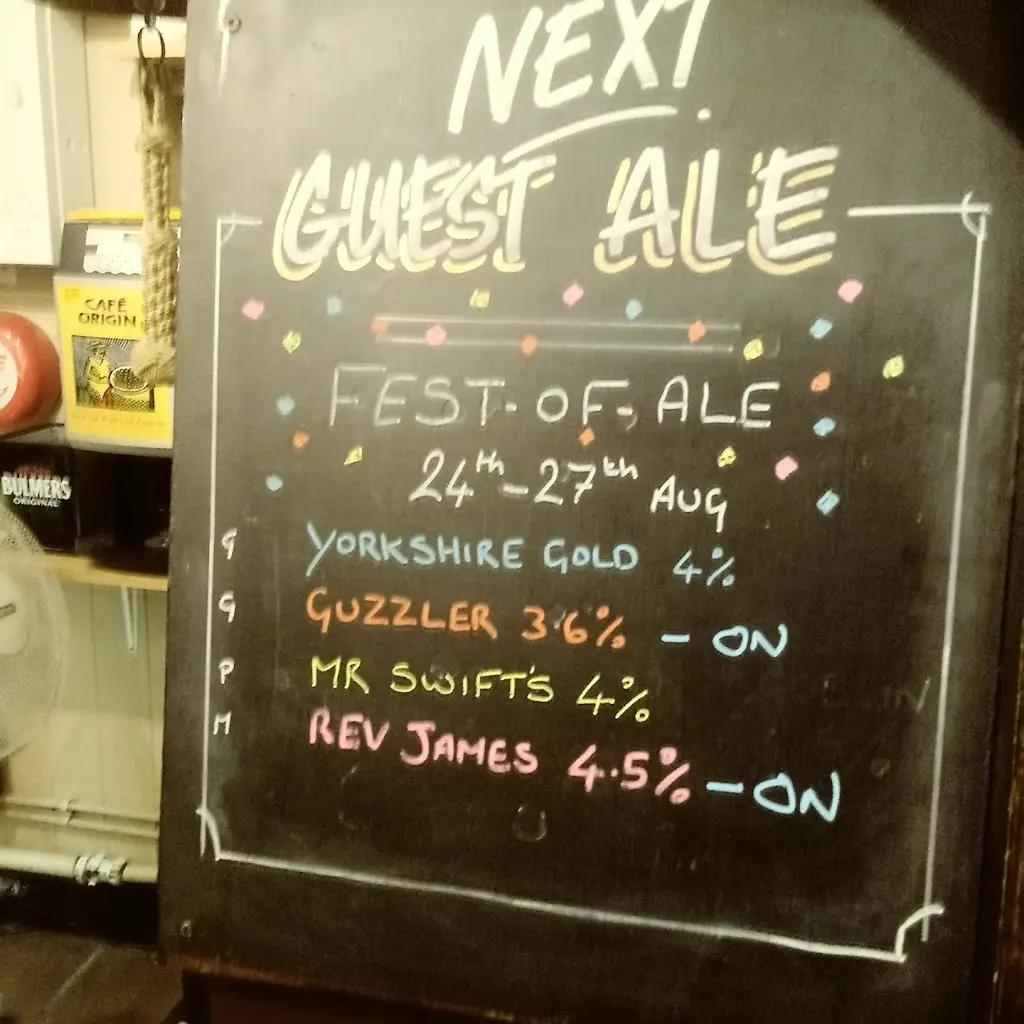 NEXT
GUEST ALE
FEST-OF-ALE
24th-27th AUG
G YORKSHIRE GOLD 4%
G GUZZLER 3.6% - ON
P MR SWIFT'S 4%
M REV JAMES 4.5% - ON
CAFÉ
ORIGIN
BULMERS
ORIGINAL